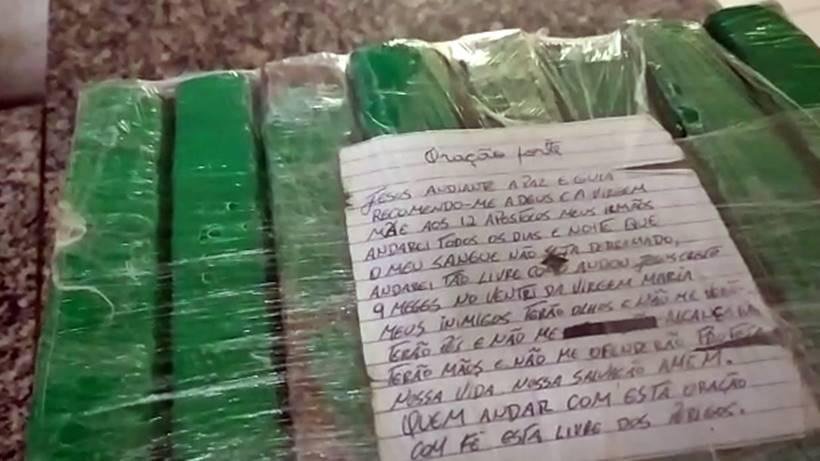 Oração forte
JESUS ANDIANTE A PAZ E GUIA
RECOMENDO-ME A DEUS E A VIRGEM
MÃE AOS 12 APOSTOCOS MEUS IRMÃOS
ANDAREI TODOS OS DIAS E NOITE QUE
O MEU SANGUE NÃO SEJA DERRAMADO,
ANDAREI TÃO LIVRE COMO ANDOU JESUS CRISTO
9 MESES NO VENTRI DA VIRGEM MARIA
MEUS INIMIGOS TERÃO OLHOS E NÃO ME VERÃO
TERÃO PÉS E NÃO ME ALCANÇARÃO
TERÃO MÃOS E NÃO ME OFENDERÃO
NOSSA VIDA NOSSA SALVAÇÃO AMÉM.
QUEM ANDAR COM ESTA ORAÇÃO
COM FÉ ESTA LIVRE DOS PERIGOS.